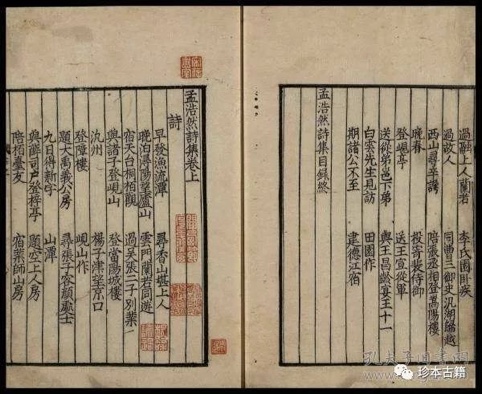 過融上人蘭若 李氏園卧疾
過故人 同曹三御史汎湖歸越
西山尋辛諤 陪張丞相登嵩陽樓
晚春 侍御
登峴亭 送王宣從軍
送從弟邕下第 與王昌齡宴王十一
白雲先生見訪 田園作
期諸公不至 建德江宿
孟浩然詩集目録終
孟浩然詩集卷上
詩
早發漁浦潭 尋香山湛上人
晚泊潯陽望廬山 雲門蘭若同遊
宿天台桐柏觀 過吴張二子别業
與諸子登峴山 登當陽城樓
州 楊子津望京口
登樓 峴山作
題大禹義公房 尋張子容隱處士
九日得新字 山潭
與薛司戶登樟亭 題空上人房
陪柏臺友 宿業師山房
珍本古籍